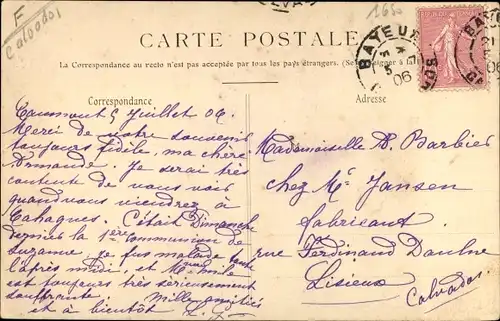 F
Calvados
1650
CARTE POSTALE
La Correspondance au recto n'est pas acceptée par tous les pays étrangers. (Se renseigner à la
BAYEUX
5
06
CALVADOS
BAYEUX
06
Correspondance
Adresse
Caumont 5 Juillet 06.
Merci de votre souvenir
toujours fidèle, ma chère
Armande. Je serai très
contente de vous voir
quand vous viendrez à
Cahagnes. C'était Dimanche
dernier la 1ère Communion de
Suzanne. Je fus malade toute
l'après midi, et Mme
est toujours très sérieusement
souffrante. Mille amitiés
et à bientôt
Mademoiselle A. Barbier
chez Mr Jansen
fabricant
rue Ferdinand Daulne
Lisieux
Calvados